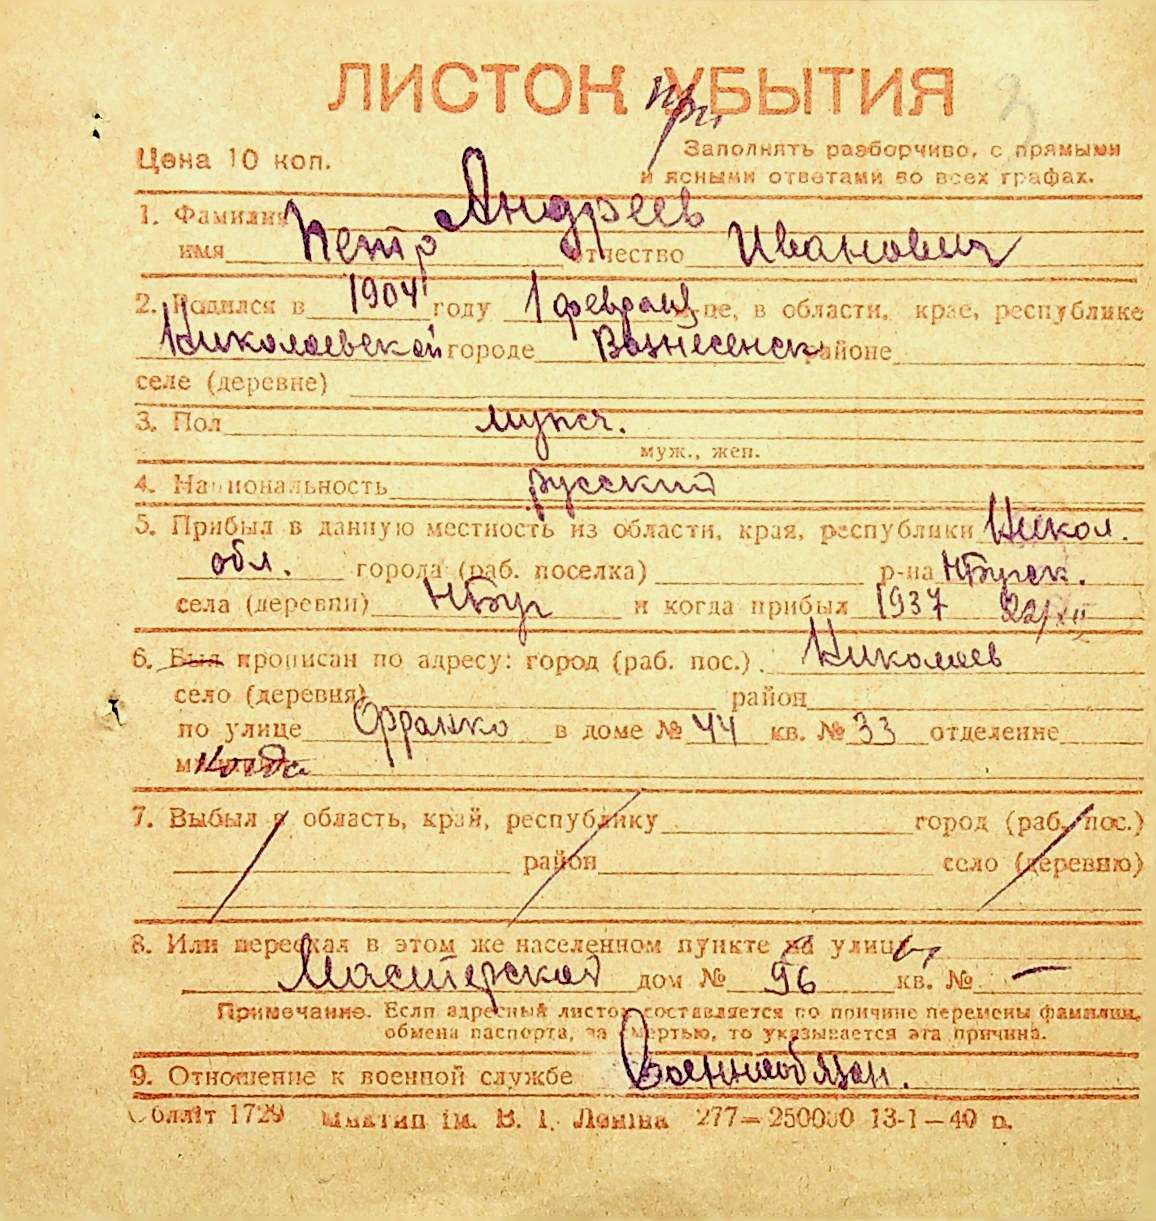 ЛИСТОК УБЫТИЯ
при
3
Цена 10 коп.
Заполнять разборчиво, с прямыми
и ясными ответами во всех графах.
1. Фамилия Андреев
имя Петр отчество Иванович
2. Родился в 1904 году 1 февраля це, в области, крае, республике
Николаевской городе Вознесенск районе
селе (деревне)
3. Пол мужск.
муж., жен.
4. Национальность русский
5. Прибыл в данную местность из области, края, республики Никол.
обл. города (раб. поселка) р-на НБугск.
села (деревни) НБуг и когда прибыл 1937 22/XII
6. Был прописан по адресу: город (раб. пос.) Николаев
село (деревня) район
по улице Франко в доме № 44 кв. № 33 отделение
когда
7. Выбыл в область, край, республику город (раб. пос.)
район село (деревню)
8. Или переехал в этом же населенном пункте на улицы
Мастерской дом № 96 кв. № —
Примечание. Если адресный листок составляется по причине перемены фамилии,
обмена паспорта, за смертью, то указывается эта причина.
9. Отношение к военной службе Военнообязан.
Облліт 1729 Миктип ім. В. І. Леніна 277—250000 13-1—40 р.